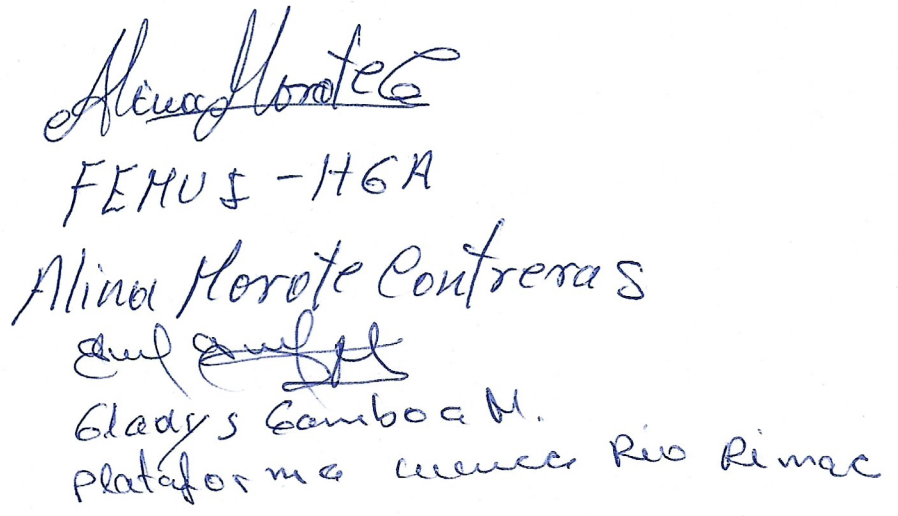 Alina Morote C
FEMUI - HGA
Alina Morote Contreras
Gladys Gamboa M.
Plataforma cuenca Rio Rimac